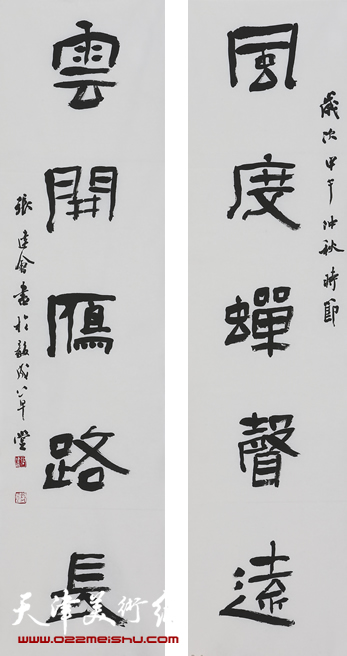 風度蟬聲遠
歲次甲午仲秋時節
雲開雁路長
張建會書於毅成八年堂
天津美術網
www.022meishu.com